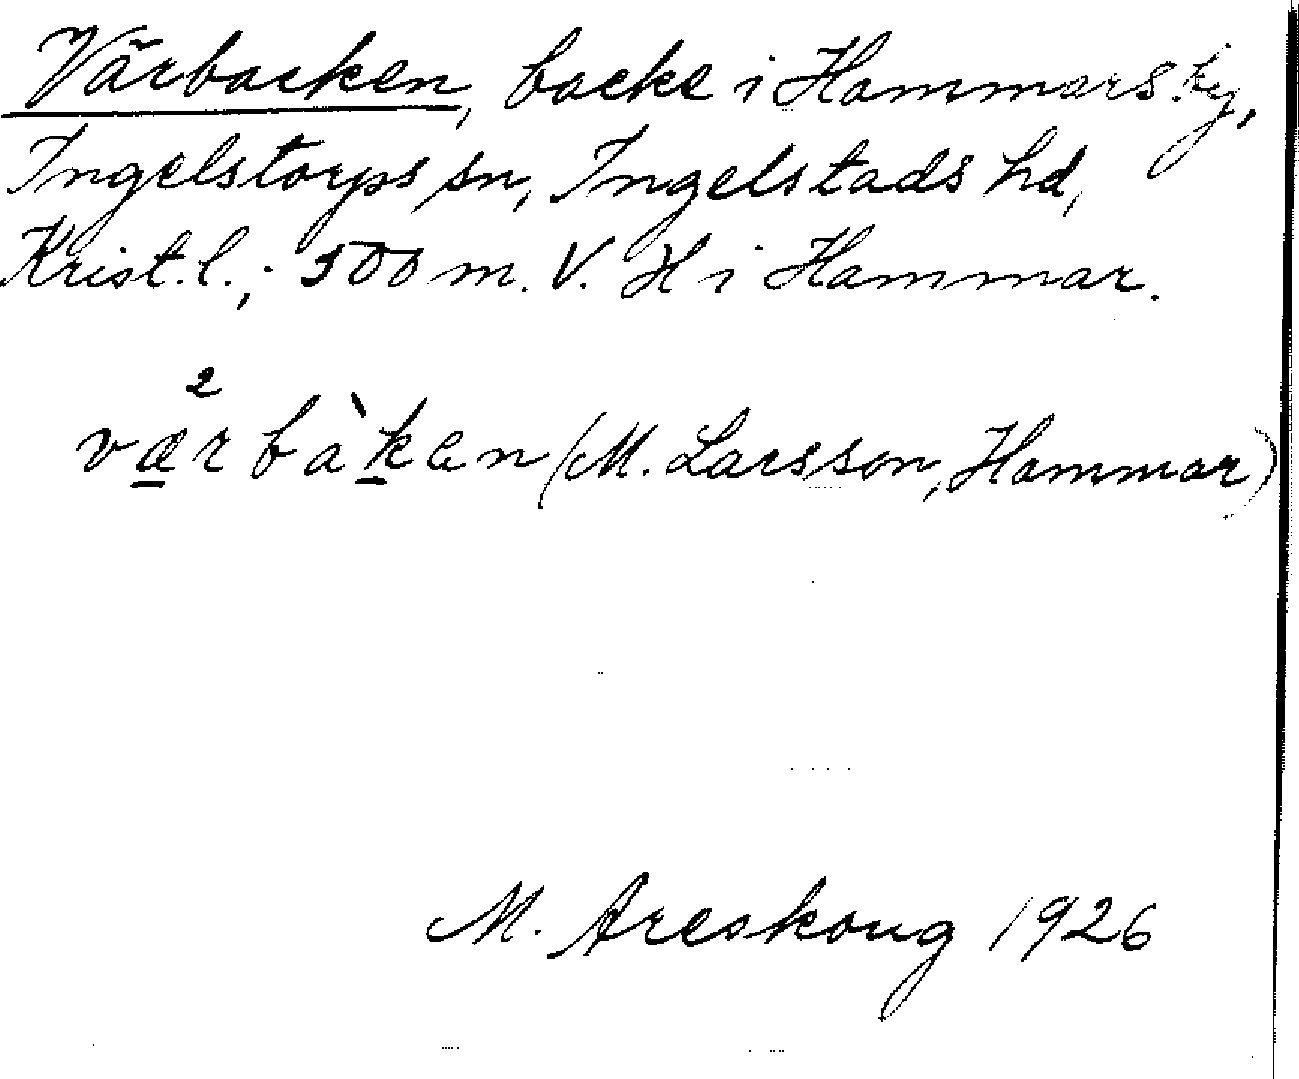 Värbacken, backe i Hammars by,
Ingelstorps sn, Ingelstads hd,
Krist. l.; 500 m. V. H i Hammar.
væ²rbàken (M. Larsson, Hammar)
M. Areskoug 1926